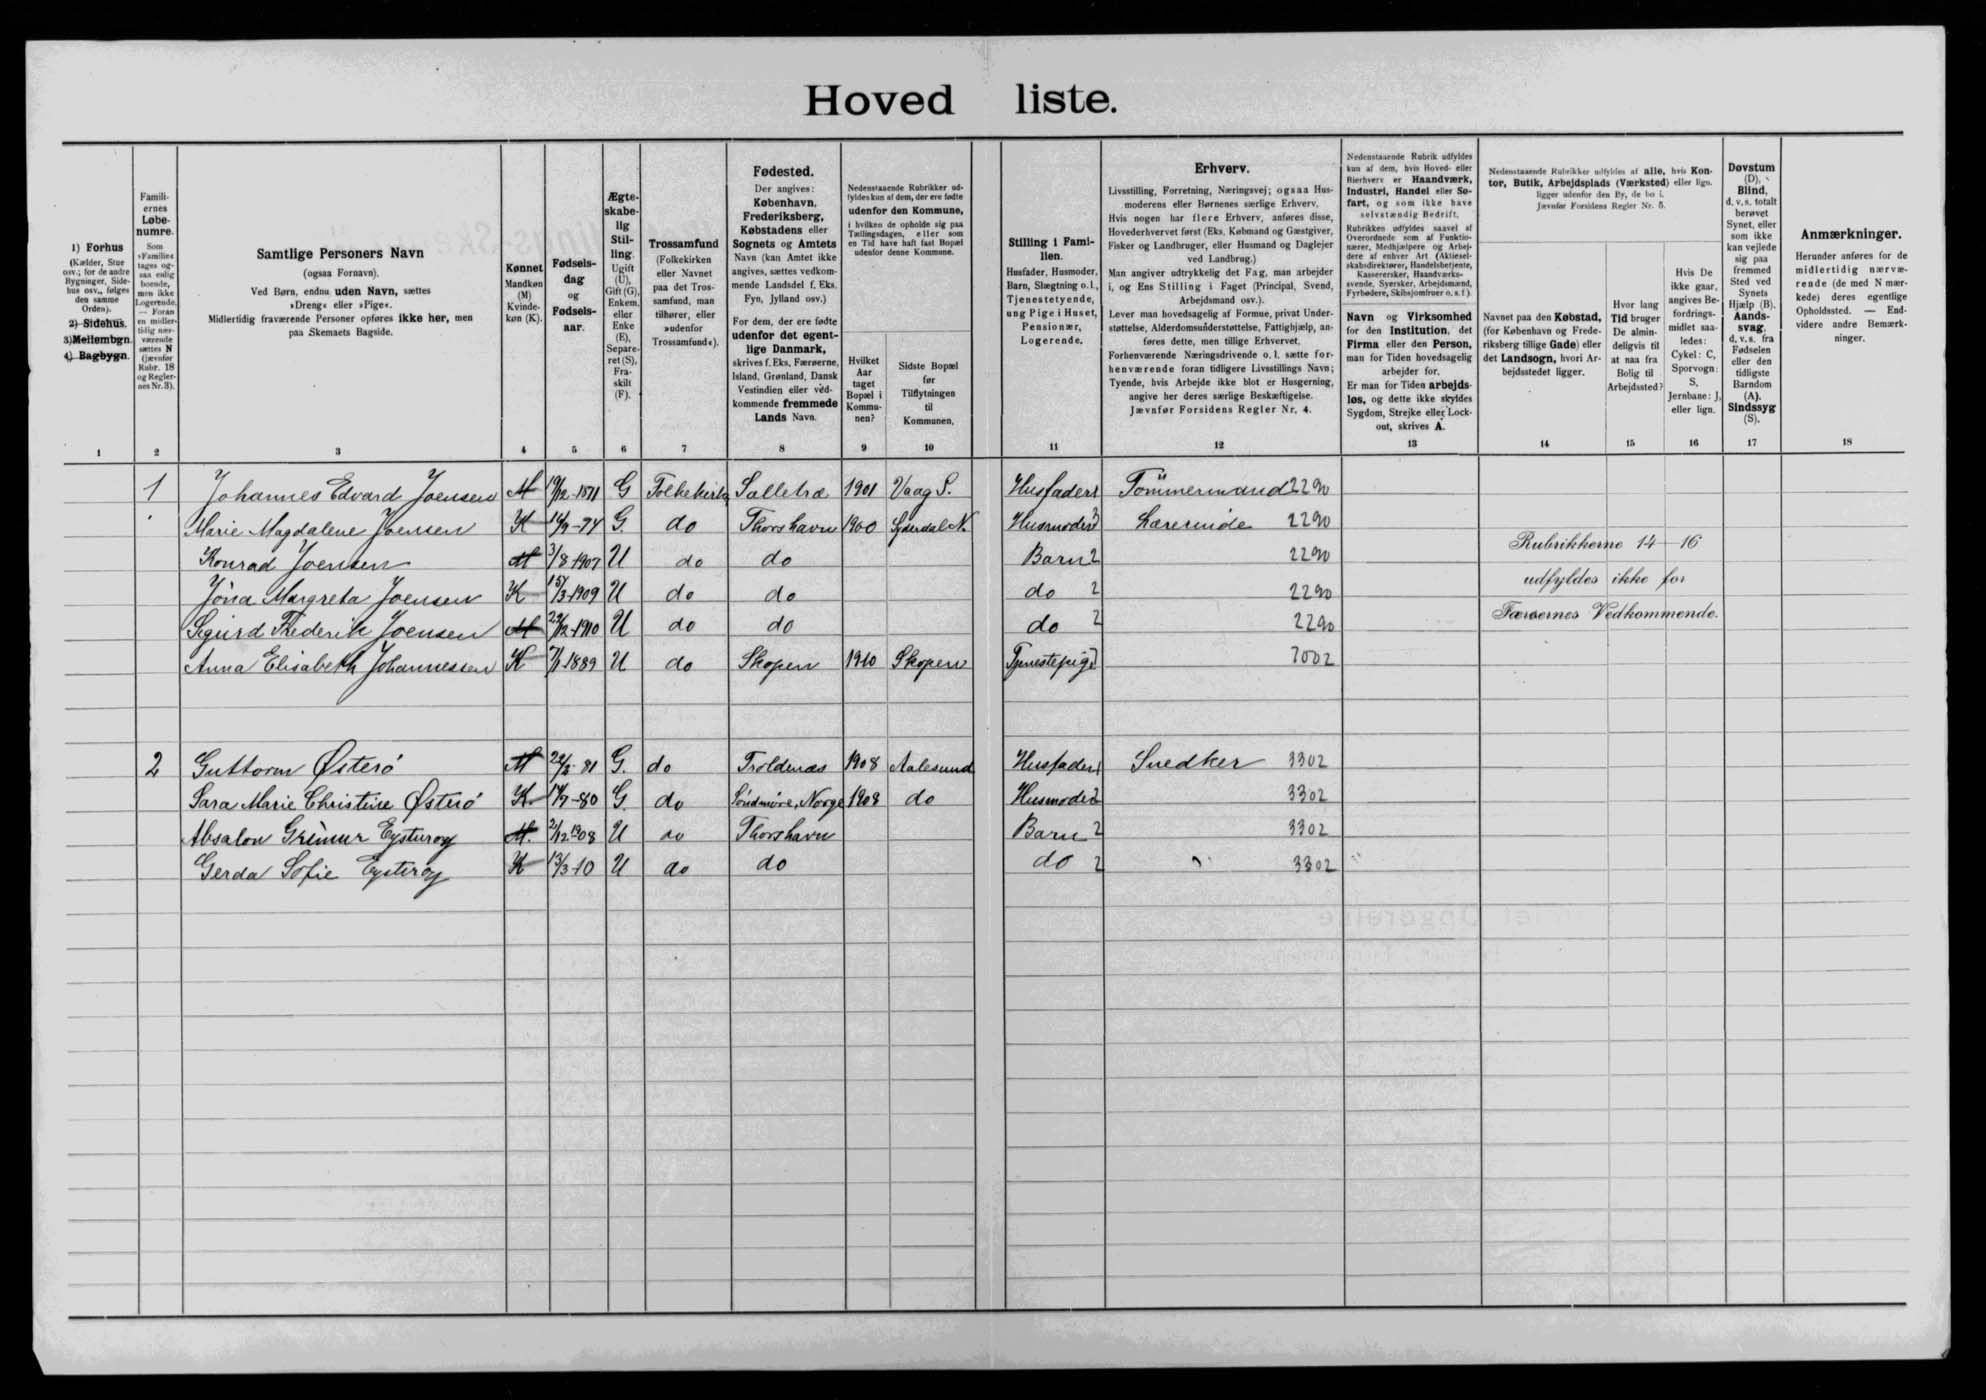 Hoved liste.
1) Forhus
(Kælder, Stue
osv.; for de andre
Bygninger, Side-
hus osv., følges
den samme
Orden).
2) Sidehus.
3) Mellembgn.
4) Bagbygn.
1
Famili-
ernes
Løbe-
numre.
Som
»Familie«
tages og-
saa enlig
boende,
men ikke
Logerende.
— Foran
en midler-
tidig nær-
værende
sættes N
(jævnfør
Rubr. 18
og Regler-
nes Nr. 3).
2
Samtlige Personers Navn
(ogsaa Fornavn).
Ved Børn, endnu uden Navn, sættes
»Dreng« eller »Pige«.
Midlertidig fraværende Personer opføres ikke her, men
paa Skemaets Bagside.
3
Kønnet
Mandkøn
(M)
Kvinde-
køn (K).
4
Fødsels-
dag
og
Fødsels-
aar.
5
Ægte-
skabe-
lig
Stil-
ling.
Ugift
(U),
Gift (G),
Enkem.
eller
Enke
(E),
Separe-
ret (S),
Fra-
skilt
(F).
6
Trossamfund
(Folkekirken
eller Navnet
paa det Tros-
samfund, man
tilhører, eller
»udenfor
Trossamfund«).
7
Fødested.
Der angives:
København,
Frederiksberg,
Købstadens eller
Sognets og Amtets
Navn (kan Amtet ikke
angives, sættes vedkom-
mende Landsdel f. Eks.
Fyn, Jylland osv.)
For dem, der ere fødte
udenfor det egent-
lige Danmark,
skrives f. Eks. Færøerne,
Island, Grønland, Dansk
Vestindien eller ved-
kommende fremmede
Lands Navn.
8
Nedenstaaende Rubrikker ud-
fyldes kun af dem, der ere fødte
udenfor den Kommune,
i hvilken de opholde sig paa
Tællingsdagen, eller som
en Tid have haft fast Bopæl
udenfor denne Kommune.
Hvilket
Aar
taget
Bopæl i
Kommu-
nen?
9
Sidste Bopæl
før
Tilflytningen
til
Kommunen.
10
Stilling i Fami-
lien.
Husfader, Husmoder,
Barn, Slægtning o. l.,
Tjenestetyende,
ung Pige i Huset,
Pensionær,
Logerende.
11
Erhverv.
Livsstilling, Forretning, Næringsvej; ogsaa Hus-
moderens eller Børnenes særlige Erhverv.
Hvis nogen har flere Erhverv, anføres disse,
Hovederhvervet først (Eks. Købmand og Gæstgiver,
Fisker og Landbruger, eller Husmand og Daglejer
ved Landbrug.)
Man angiver udtrykkelig det Fag, man arbejder
i, og Ens Stilling i Faget (Principal, Svend,
Arbejdsmand osv.).
Lever man hovedsagelig af Formue, privat Under-
støttelse, Alderdomsunderstøttelse, Fattighjælp, an-
føres dette, men tillige Erhvervet.
Forhenværende Næringsdrivende o. l. sætte for-
henværende foran tidligere Livsstillings Navn;
Tyende, hvis Arbejde ikke blot er Husgerning,
angive her deres særlige Beskæftigelse.
Jævnfør Forsidens Regler Nr. 4.
12
Nedenstaaende Rubrik udfyldes
kun af dem, hvis Hoved- eller
Bierhverv er Haandværk,
Industri, Handel eller Sø-
fart, og som ikke have
selvstændig Bedrift.
Rubrikken udfyldes saavel af
Overordnede som af Funktio-
nærer, Medhjælpere og Arbej-
dere af enhver Art (Aktiesel-
skabsdirektører, Handelsbetjente,
Kassererske, Haandværks-
svende, Syersker, Arbejdsmænd,
Fyrbødere, Skibsjomfruer o. s. f.).
Navn og Virksomhed
for den Institution, det
Firma eller den Person,
man for Tiden hovedsagelig
arbejder for.
Er man for Tiden arbejds-
løs, og dette ikke skyldes
Sygdom, Strejke eller Lock-
out, skrives A.
13
Nedenstaaende Rubrikker udfyldes af alle, hvis Kon-
tor, Butik, Arbejdsplads (Værksted) eller lign.
ligger udenfor den By, de bo i.
Jævnfør Forsidens Regler Nr. 5.
Navnet paa den Købstad,
(for København og Frede-
riksberg tillige Gade) eller
det Landsogn, hvori Ar-
bejdsstedet ligger.
14
Hvor lang
Tid bruger
De almin-
deligvis til
at naa fra
Bolig til
Arbejdssted?
15
Hvis De
ikke gaar,
angives Be-
fordrings-
midlet saa-
ledes:
Cykel: C,
Sporvogn:
S,
Jernbane: J,
eller lign.
16
Døvstum
(D),
Blind,
d. v. s. totalt
berøvet
Synet, eller
som ikke
kan vejlede
sig paa
fremmed
Sted ved
Synets
Hjælp (B).
Aands-
svag,
d. v. s. fra
Fødselen
eller den
tidligste
Barndom
(A).
Sindssyg
(S).
17
Anmærkninger.
Herunder anføres for de
midlertidig nærvæ-
rende (de med N mær-
kede) deres egentlige
Opholdssted. — End-
videre andre Bemærk-
ninger.
18
1 Johannes Edvard Joensen M 19/12-1871 G Folkekirke Salletræ 1901 Vaag S. Husfader 1 Tømmermand 2290
Marie Magdalene Joensen K 14/9-74 G do Thorshavn 1900 Syderdal N. Husmoder 3 Lærerinde 2290
Konrad Joensen M 3/8-1907 U do do Barn 2 2290
Rubrikkerne 14-16
Jóna Margreta Joensen K 15/3-1909 U do do do 2 2290
udfyldes ikke for
Sigurd Frederik Joensen M 29/12-1910 U do do do 2 2290
Færøernes Vedkommende.
Anna Elisabeth Johannessen K 7/1-1889 U do Skopen 1910 Skopen Tjenestepige 7002
2 Guttorm Østerö M 22/3-81 G. do Troldenæs 1908 Aalesund Husfader 1 Snedker 3302
Sara Marie Christine Østerö K 14/7-80 G do Söndmöre, Norge 1908 do Husmoder 2 3302
Absalon Grimur Eysturoy M. 2/12 1908 U do Thorshavn Barn 2 3302
Gerda Sofie Eysturoy K 13/3-10 U do do do 2 3302